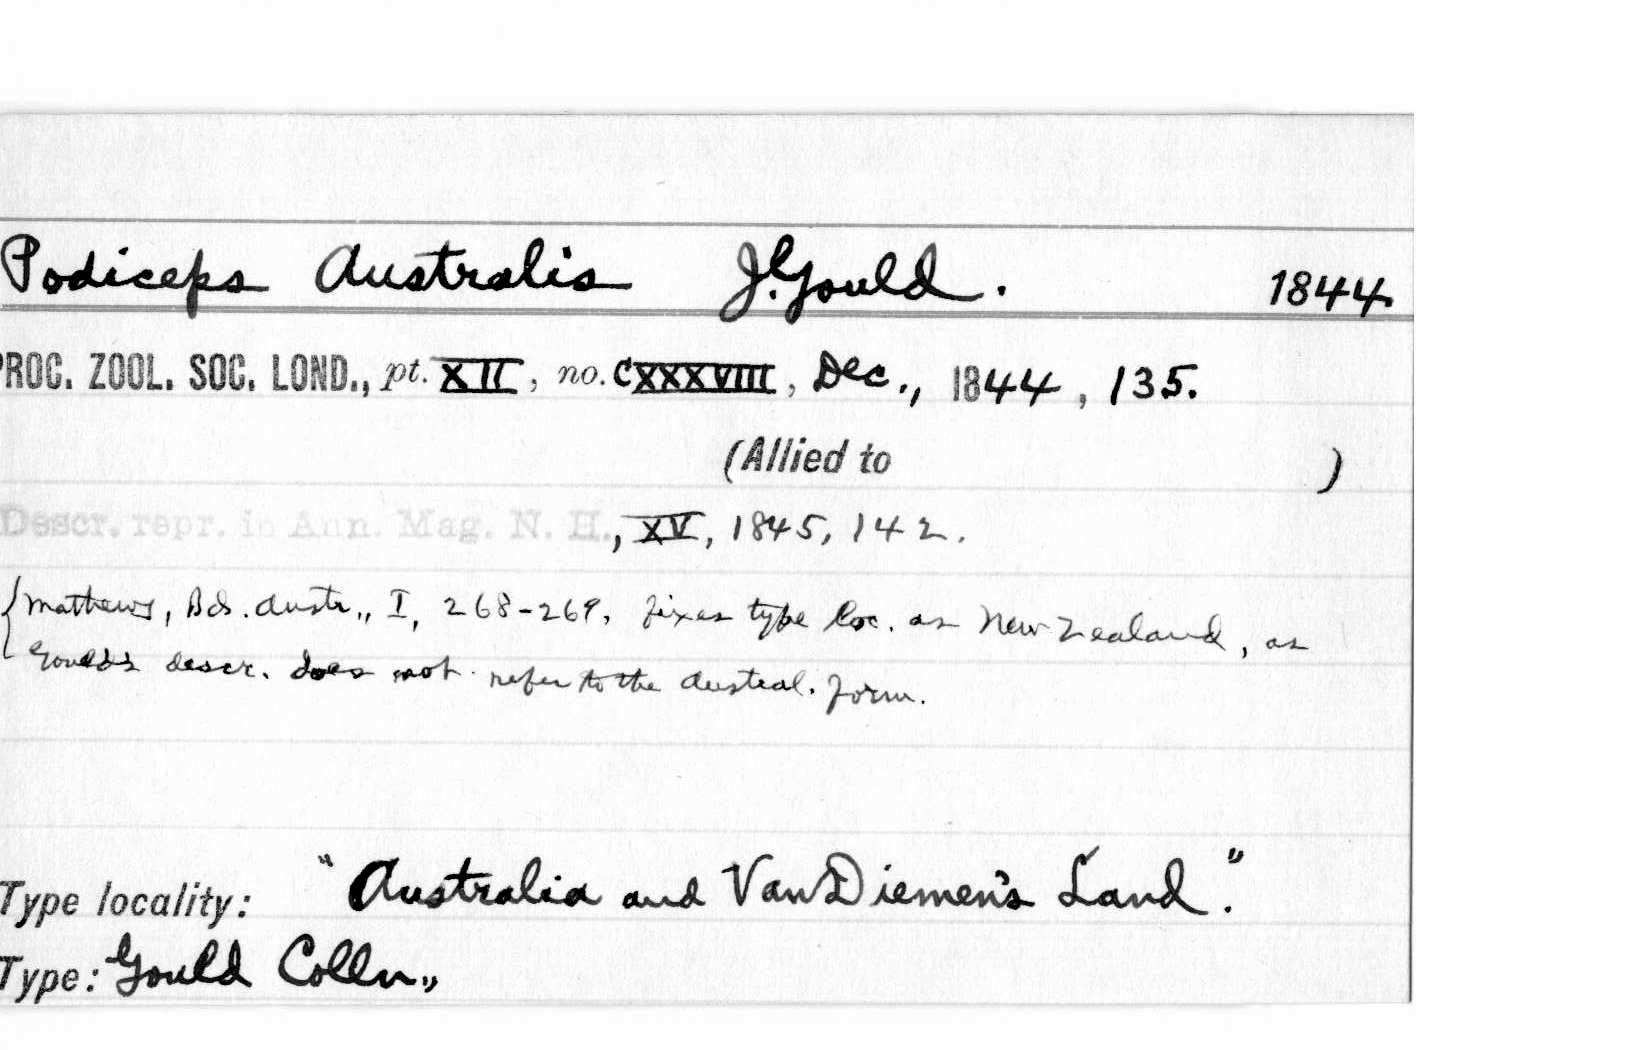 Podiceps Australis J. Gould. 1844.
PROC. ZOOL. SOC. LOND., pt. XII, no. CXXXVIII, Dec., 1844, 135.
(Allied to )
Descr. repr. in Ann. Mag. N. H., XV, 1845, 142.
{Mathews, Bds. Austr., I, 268-269, fixes type loc. as New Zealand, as
Gould's descr. does not refer to the Austral. form.
Type locality: "Australia and Van Diemen's Land."
Type: Gould Colln.,